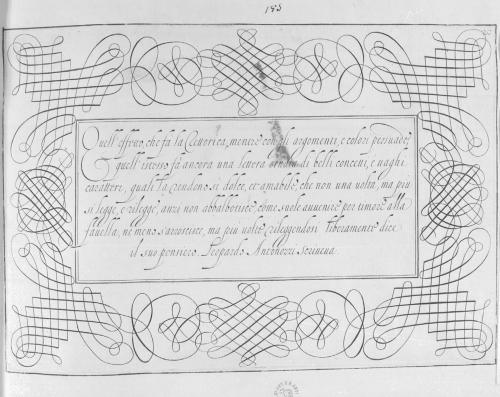 193
Quell'effetto, che fa la Rettorica, mentre con gli argomenti, e colori persuade,
Quell'istesso fà ancora una lettera ornata di belli concetti, e uaghi
caratteri, quali la rendono sì dolce, et amabile, che non una uolta, ma più
si legge, e rilegge, anzi non abbalbotisce, come suole auuenire per timore alla
fauella, ne meno s'arrossisce, ma più uolte rileggendosi liberamente dice
il suo pensiero. Leopardo Antonozzi scriueua